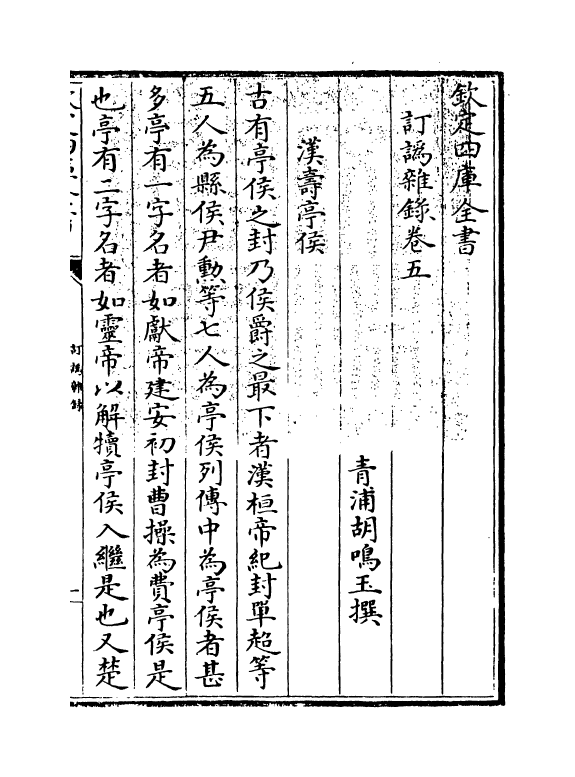 欽定四庫全書
訂譌雜錄卷五
青浦胡鳴玉撰
漢壽亭侯
古有亭侯之封乃侯爵之最下者漢桓帝紀封單超等
五人為縣侯尹勳等七人為亭侯列傳中為亭侯者甚
多亭有一字名者如獻帝建安初封曹操為費亭侯是
也亭有二字名者如靈帝以解犢亭侯入繼是也又楚
訂譌雜錄
一